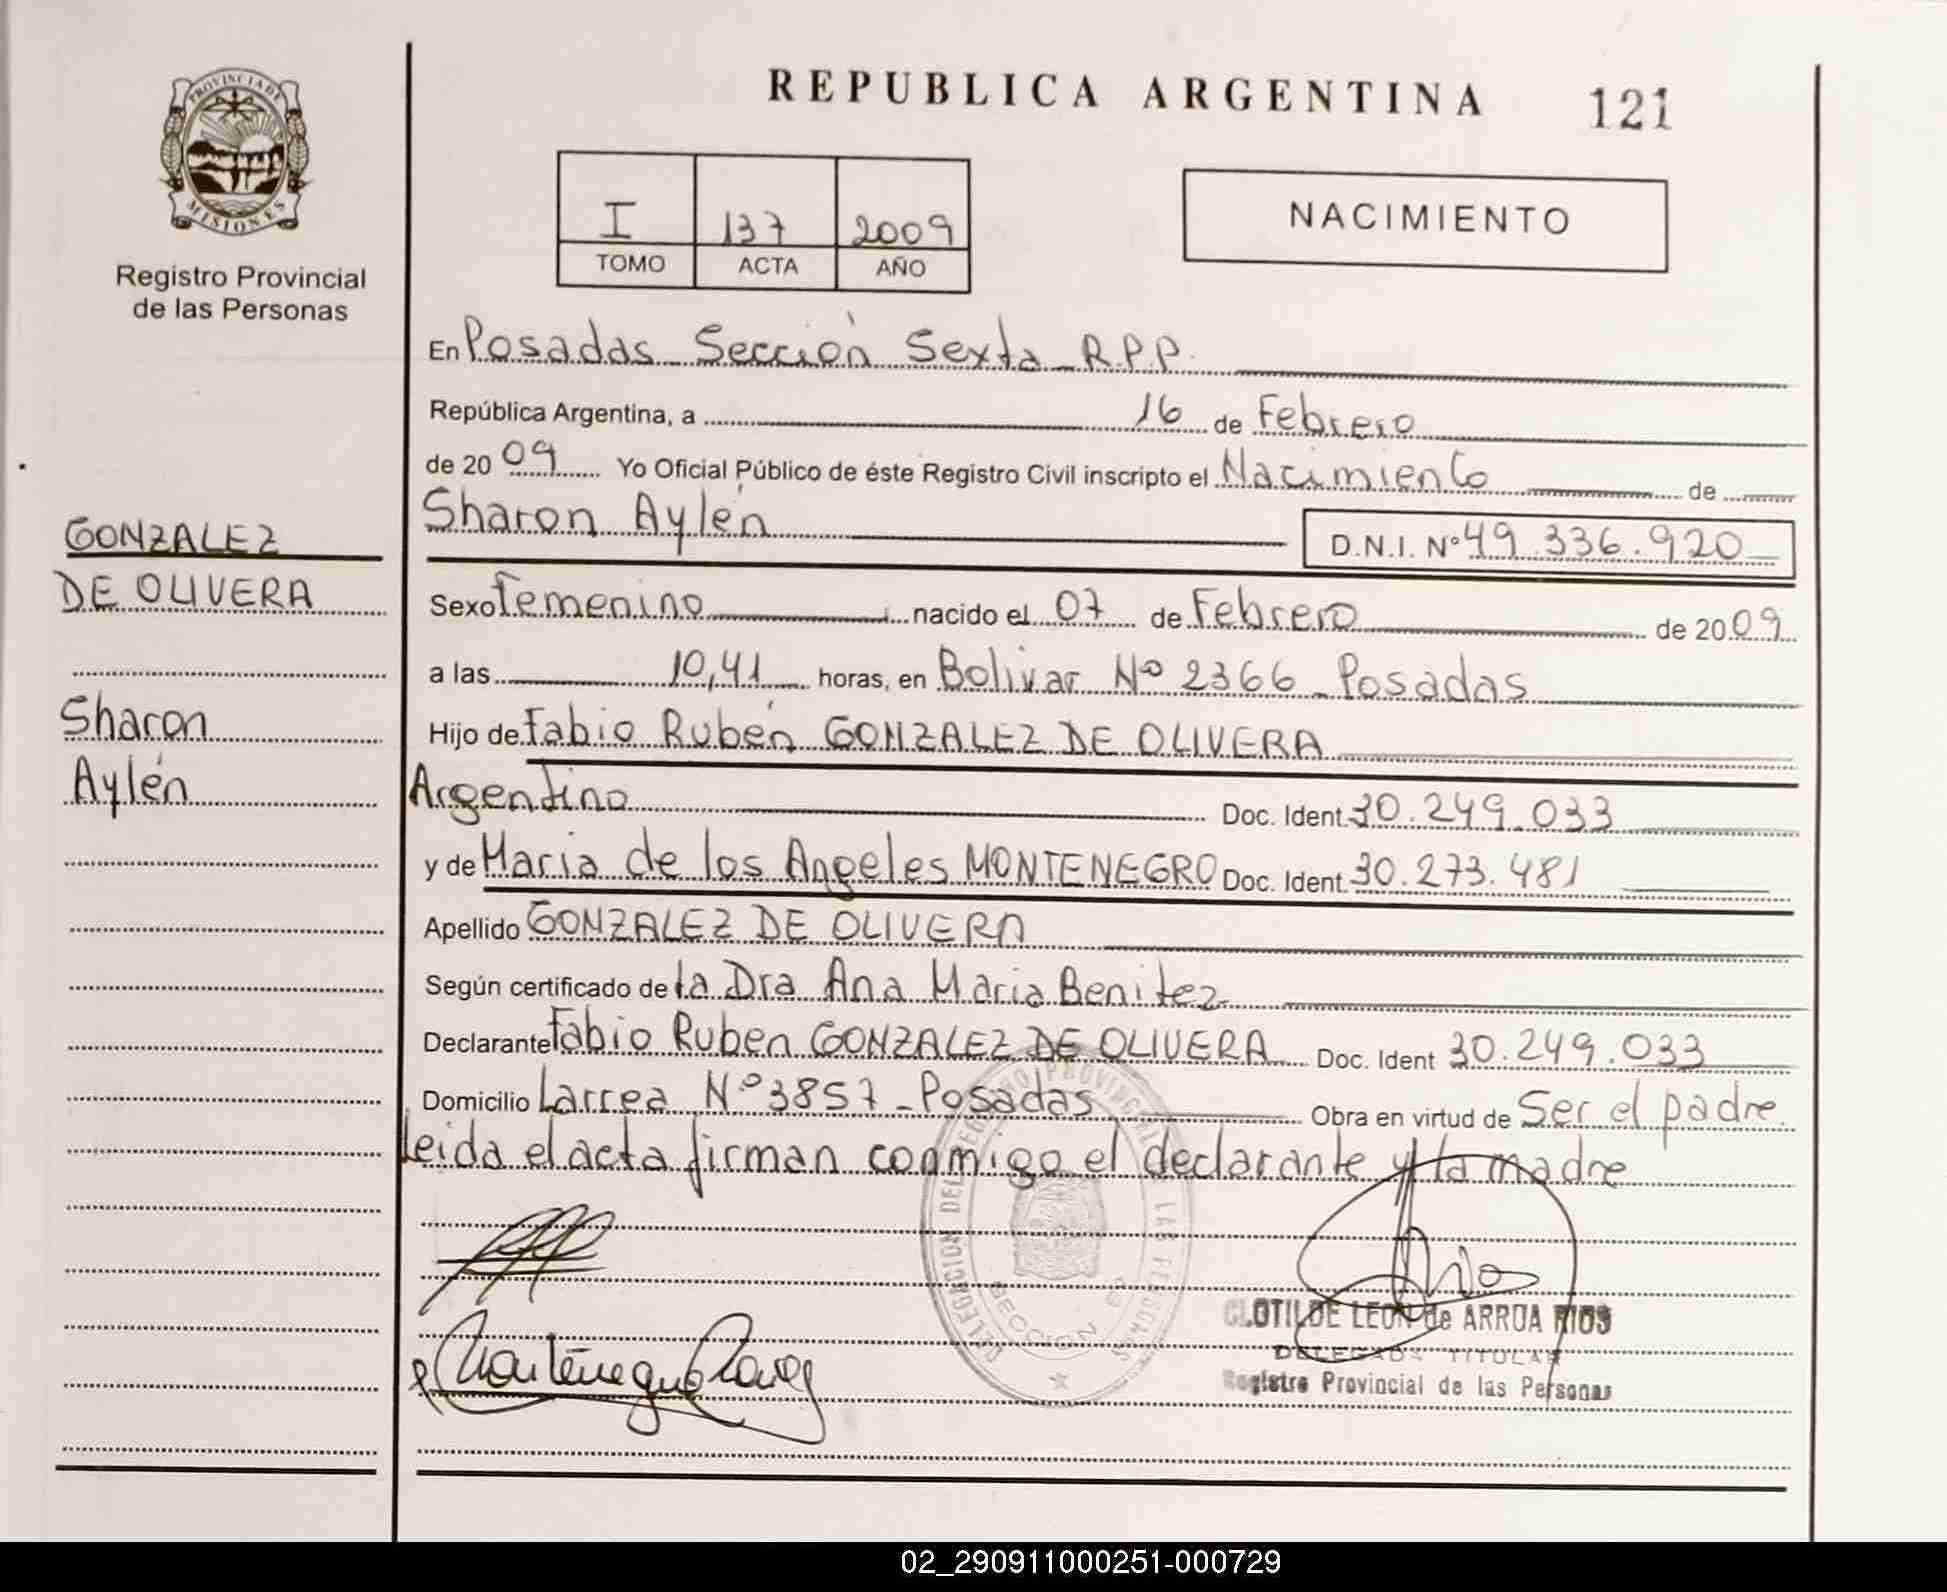 REPUBLICA ARGENTINA 121
PROVINCIA DE
MISIONES
Registro Provincial
de las Personas
I 137 2009
TOMO ACTA AÑO
NACIMIENTO
En Posadas Sección Sexta R.P.P.
República Argentina, a 16 de Febrero
de 20 09 Yo Oficial Público de éste Registro Civil inscripto el Nacimiento de
Sharon Aylén
D.N.I. Nº 49.336.920
GONZALEZ
DE OLIVERA
Sharon
Aylén
Sexo Femenino nacido el 07 de Febrero de 20 09
a las 10,41 horas, en Bolivar Nº 2366 Posadas
Hijo de Fabio Rubén GONZALEZ DE OLIVERA
Argentino Doc. Ident. 30.249.033
y de Maria de los Angeles MONTENEGRO Doc. Ident. 30.273.481
Apellido GONZALEZ DE OLIVERA
Según certificado de la Dra Ana Maria Benitez
Declarante Fabio Ruben GONZALEZ DE OLIVERA Doc. Ident 30.249.033
Domicilio Larrea Nº 3857 - Posadas Obra en virtud de Ser el padre.
Leida el acta firman conmigo el declarante y la madre
DELEGACION DEL REGISTRO PROVINCIAL DE LAS PERSONAS
SECCION
CLOTILDE LEON de ARRUA RIOS
DELEGADA TITULAR
Registro Provincial de las Personas
02_290911000251-000729